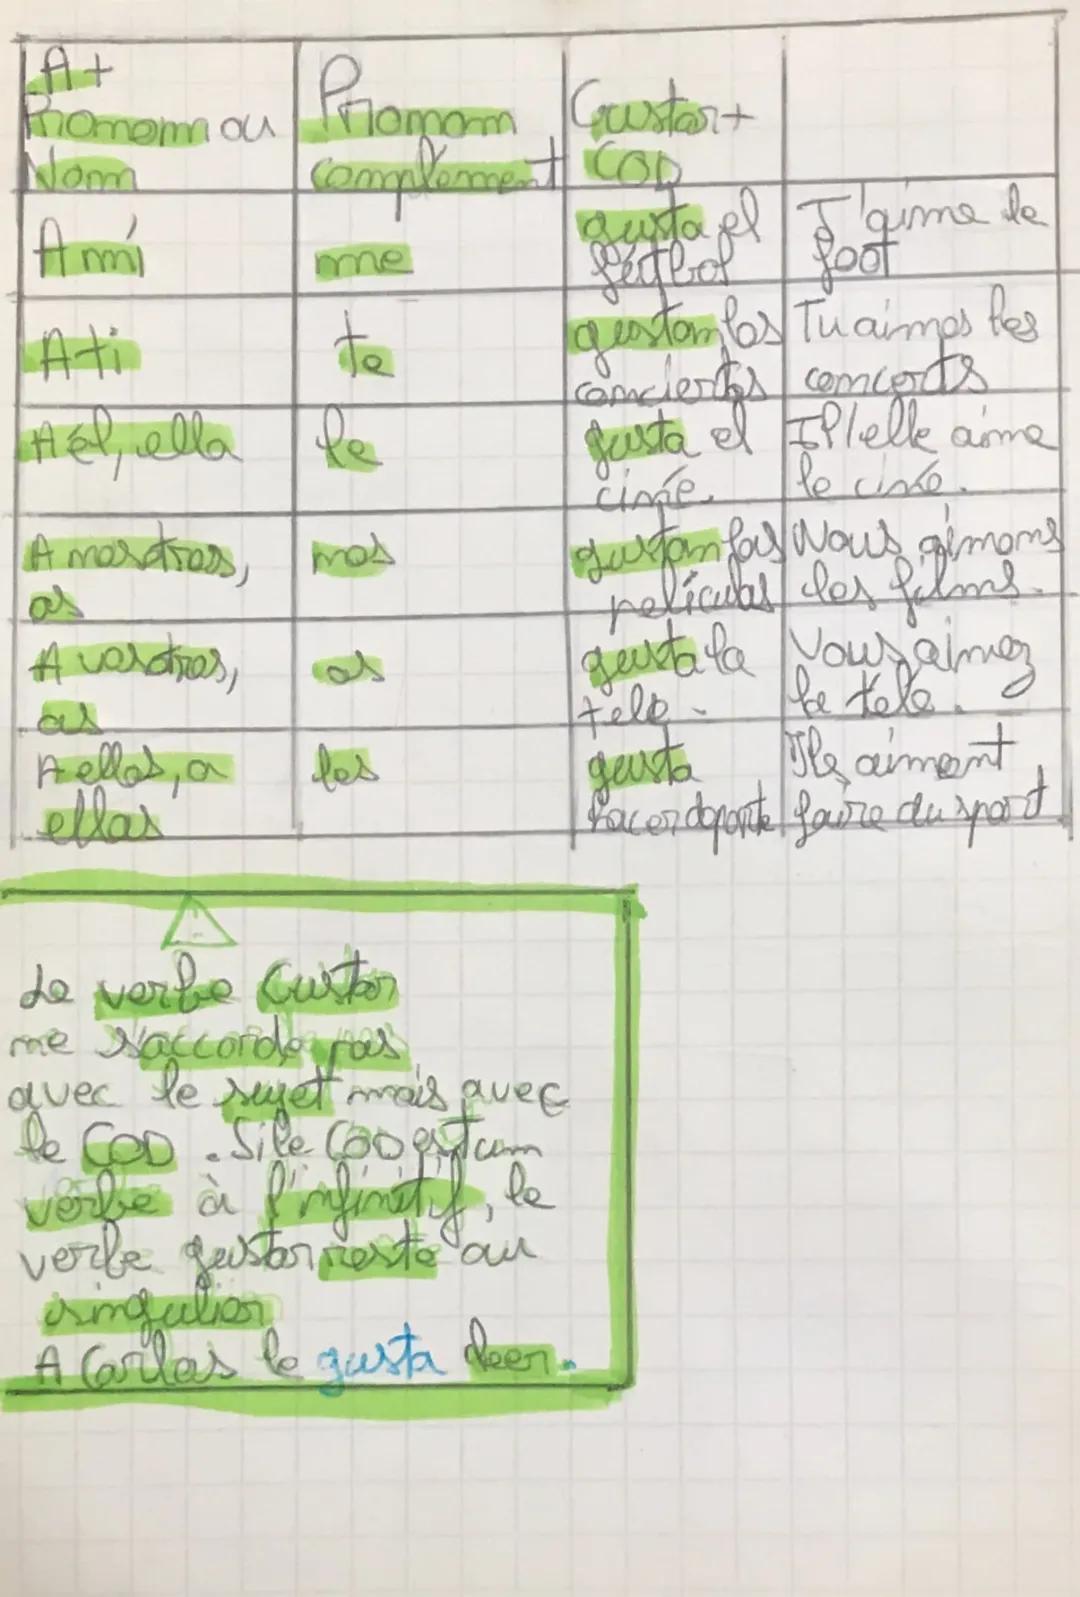 A+
Pronom ou
Nom
Pronom
complément
Gustar+
COD
A mí
me
gusta el
fútbol
J'aime le
foot
A ti
te
gustan los
conciertos
Tu aimes les
concerts
A él, ella
le
gusta el
cine.
Il/elle aime
le ciné.
A nosotros,
as
nos
gustan las
películas
Nous aimons
les films.
A vosotros,
as
os
gusta la
tele.
Vous aimez
la télé.
A ellos, a
ellas
les
gusta
hacer deporte
Ils aiment
faire du sport
Le verbe Gustar
ne s'accorde pas
avec le sujet mais avec
le COD. Si le COD est un
verbe à l'infinitif, le
verbe gustar reste au
singulier
A Carlos le gusta leer.